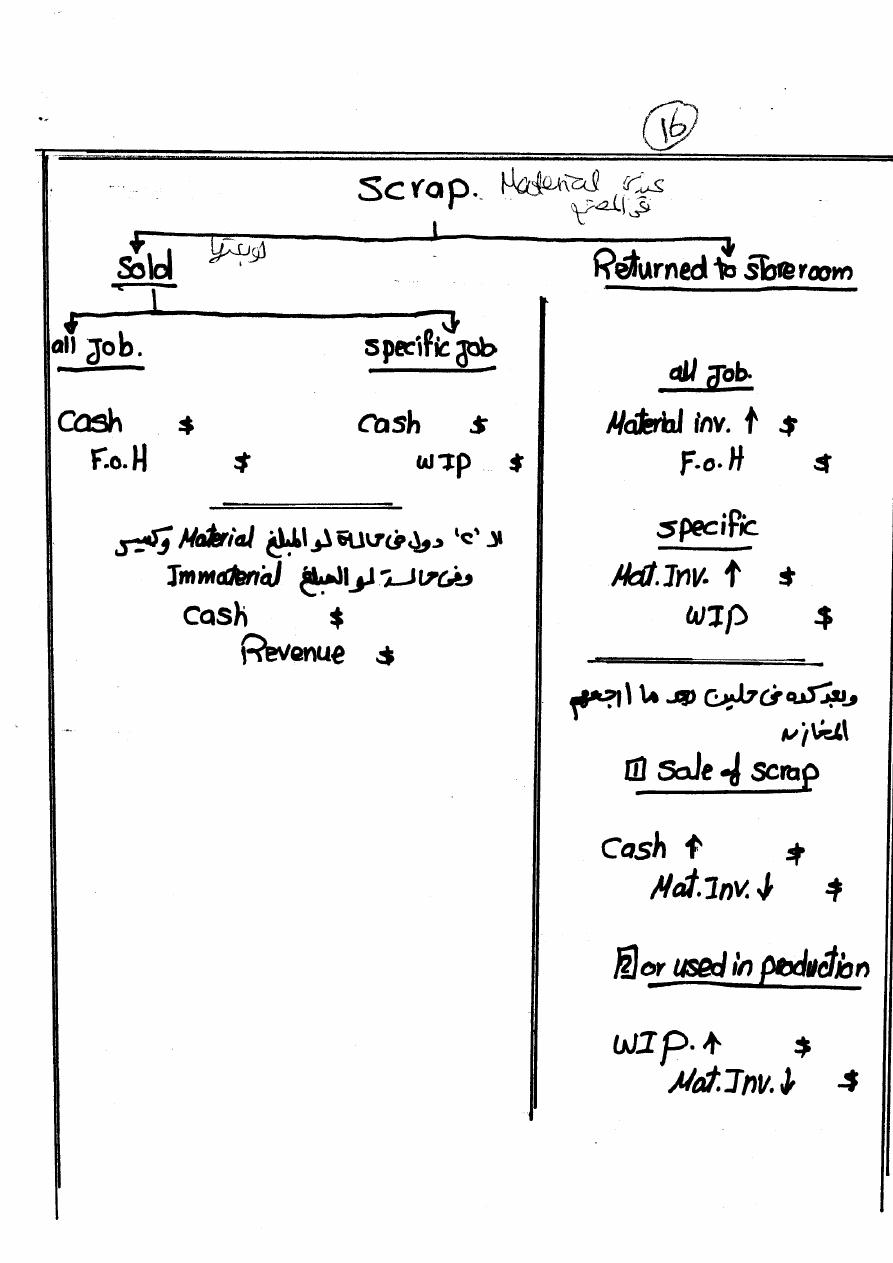 16
Scrap. Material
فى المصنع
Sold
لو بعتها
all Job.
Cash $
F.o.H $
specific Job
Cash $
WIP $
دول فى حالة لو المبلغ Material وكبير
وفى حالة لو المبلغ Immaterial
Cash $
Revenue $
Returned to Storeroom
all Job.
Material inv. ↑ $
F.o.H $
specific
Mat. Inv. ↑ $
WIP $
وبعد كده فى حلين بعد ما ارجعهم
المخازن
1 Sale of scrap
Cash ↑ $
Mat. Inv. ↓ $
2 or used in production
WIP. ↑ $
Mat. Inv. ↓ $